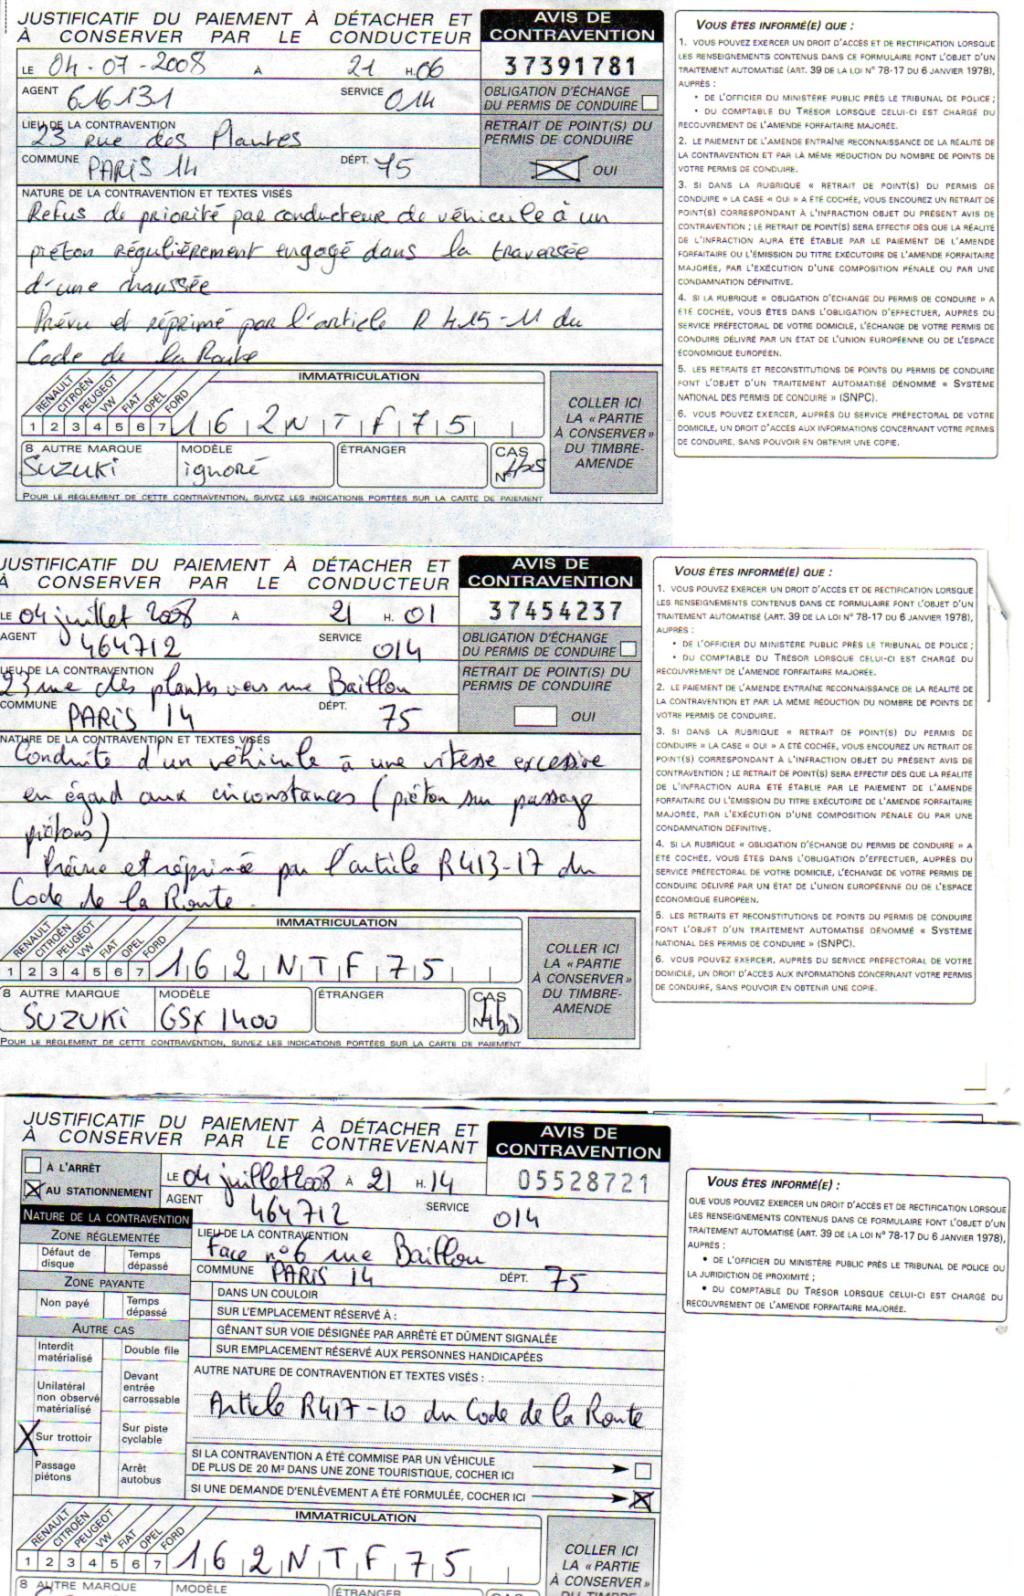 JUSTIFICATIF DU PAIEMENT À DÉTACHER ET
À CONSERVER PAR LE CONDUCTEUR
AVIS DE
CONTRAVENTION
LE 04-07-2008 A 21 H.06
37391781
AGENT 616131 SERVICE 014
OBLIGATION D'ÉCHANGE
DU PERMIS DE CONDUIRE
LIEU DE LA CONTRAVENTION
23 Rue des Plantes
COMMUNE PARIS 14 DÉPT. 75
RETRAIT DE POINT(S) DU
PERMIS DE CONDUIRE
OUI
NATURE DE LA CONTRAVENTION ET TEXTES VISÉS
Refus de priorité par conducteur de véhicule à un
piéton régulièrement engagé dans la traversée
d'une chaussée
Prévu et réprimé par l'article R 415-11 du
Code de la Route
IMMATRICULATION
RENAULT CITROËN PEUGEOT VW FIAT OPEL FORD
1 2 3 4 5 6 7 162NTF75
8 AUTRE MARQUE MODÈLE ÉTRANGER CAS N°
SUZUKI ignoré
COLLER ICI
LA «PARTIE
À CONSERVER»
DU TIMBRE-
AMENDE
POUR LE RÈGLEMENT DE CETTE CONTRAVENTION, SUIVEZ LES INDICATIONS PORTÉES SUR LA CARTE DE PAIEMENT
VOUS ÊTES INFORMÉ(E) QUE :
1. VOUS POUVEZ EXERCER UN DROIT D'ACCÈS ET DE RECTIFICATION LORSQUE
LES RENSEIGNEMENTS CONTENUS DANS CE FORMULAIRE FONT L'OBJET D'UN
TRAITEMENT AUTOMATISÉ (ART. 39 DE LA LOI N° 78-17 DU 6 JANVIER 1978),
AUPRÈS :
• DE L'OFFICIER DU MINISTÈRE PUBLIC PRÈS LE TRIBUNAL DE POLICE ;
• DU COMPTABLE DU TRÉSOR LORSQUE CELUI-CI EST CHARGÉ DU
RECOUVREMENT DE L'AMENDE FORFAITAIRE MAJORÉE.
2. LE PAIEMENT DE L'AMENDE ENTRAÎNE RECONNAISSANCE DE LA RÉALITÉ DE
LA CONTRAVENTION ET PAR LÀ MÊME RÉDUCTION DU NOMBRE DE POINTS DE
VOTRE PERMIS DE CONDUIRE.
3. SI DANS LA RUBRIQUE « RETRAIT DE POINT(S) DU PERMIS DE
CONDUIRE » LA CASE « OUI » A ÉTÉ COCHÉE, VOUS ENCOUREZ UN RETRAIT DE
POINT(S) CORRESPONDANT À L'INFRACTION OBJET DU PRÉSENT AVIS DE
CONTRAVENTION ; LE RETRAIT DE POINT(S) SERA EFFECTIF DÈS QUE LA RÉALITÉ
DE L'INFRACTION AURA ÉTÉ ÉTABLIE PAR LE PAIEMENT DE L'AMENDE
FORFAITAIRE OU L'ÉMISSION DU TITRE EXÉCUTOIRE DE L'AMENDE FORFAITAIRE
MAJORÉE, PAR L'EXÉCUTION D'UNE COMPOSITION PÉNALE OU PAR UNE
CONDAMNATION DÉFINITIVE.
4. SI LA RUBRIQUE « OBLIGATION D'ÉCHANGE DU PERMIS DE CONDUIRE » A
ÉTÉ COCHÉE, VOUS ÊTES DANS L'OBLIGATION D'EFFECTUER, AUPRÈS DU
SERVICE PRÉFECTORAL DE VOTRE DOMICILE, L'ÉCHANGE DE VOTRE PERMIS DE
CONDUIRE DÉLIVRÉ PAR UN ÉTAT DE L'UNION EUROPÉENNE OU DE L'ESPACE
ÉCONOMIQUE EUROPÉEN.
5. LES RETRAITS ET RECONSTITUTIONS DE POINTS DU PERMIS DE CONDUIRE
FONT L'OBJET D'UN TRAITEMENT AUTOMATISÉ DÉNOMMÉ « SYSTÈME
NATIONAL DES PERMIS DE CONDUIRE » (SNPC).
6. VOUS POUVEZ EXERCER, AUPRÈS DU SERVICE PRÉFECTORAL DE VOTRE
DOMICILE, UN DROIT D'ACCÈS AUX INFORMATIONS CONCERNANT VOTRE PERMIS
DE CONDUIRE, SANS POUVOIR EN OBTENIR UNE COPIE.
JUSTIFICATIF DU PAIEMENT À DÉTACHER ET
À CONSERVER PAR LE CONDUCTEUR
AVIS DE
CONTRAVENTION
LE 04 juillet 2008 À 21 H. 01
37454237
AGENT 464712 SERVICE 014
OBLIGATION D'ÉCHANGE
DU PERMIS DE CONDUIRE
LIEU DE LA CONTRAVENTION
23 rue des plantes vers rue Baillou
COMMUNE PARIS 14 DÉPT. 75
RETRAIT DE POINT(S) DU
PERMIS DE CONDUIRE
OUI
NATURE DE LA CONTRAVENTION ET TEXTES VISÉS
Conduite d'un véhicule à une vitesse excessive
en égard aux circonstances (piéton sur passage
piétons)
Prévue et réprimée par l'article R413-17 du
Code de la Route.
IMMATRICULATION
RENAULT CITROËN PEUGEOT VW FIAT OPEL FORD
1 2 3 4 5 6 7 162NTF75
8 AUTRE MARQUE MODÈLE ÉTRANGER CAS
SUZUKI GSX 1400
COLLER ICI
LA «PARTIE
À CONSERVER»
DU TIMBRE-
AMENDE
POUR LE RÈGLEMENT DE CETTE CONTRAVENTION, SUIVEZ LES INDICATIONS PORTÉES SUR LA CARTE DE PAIEMENT
VOUS ÊTES INFORMÉ(E) QUE :
1. VOUS POUVEZ EXERCER UN DROIT D'ACCÈS ET DE RECTIFICATION LORSQUE
LES RENSEIGNEMENTS CONTENUS DANS CE FORMULAIRE FONT L'OBJET D'UN
TRAITEMENT AUTOMATISÉ (ART. 39 DE LA LOI N° 78-17 DU 6 JANVIER 1978),
AUPRÈS :
• DE L'OFFICIER DU MINISTÈRE PUBLIC PRÈS LE TRIBUNAL DE POLICE ;
• DU COMPTABLE DU TRÉSOR LORSQUE CELUI-CI EST CHARGÉ DU
RECOUVREMENT DE L'AMENDE FORFAITAIRE MAJORÉE.
2. LE PAIEMENT DE L'AMENDE ENTRAÎNE RECONNAISSANCE DE LA RÉALITÉ DE
LA CONTRAVENTION ET PAR LA MÊME RÉDUCTION DU NOMBRE DE POINTS DE
VOTRE PERMIS DE CONDUIRE.
3. SI DANS LA RUBRIQUE « RETRAIT DE POINT(S) DU PERMIS DE
CONDUIRE » LA CASE « OUI » A ÉTÉ COCHÉE, VOUS ENCOUREZ UN RETRAIT DE
POINT(S) CORRESPONDANT À L'INFRACTION OBJET DU PRÉSENT AVIS DE
CONTRAVENTION ; LE RETRAIT DE POINT(S) SERA EFFECTIF DÈS QUE LA RÉALITÉ
DE L'INFRACTION AURA ÉTÉ ÉTABLIE PAR LE PAIEMENT DE L'AMENDE
FORFAITAIRE OU L'ÉMISSION DU TITRE EXÉCUTOIRE DE L'AMENDE FORFAITAIRE
MAJORÉE, PAR L'EXÉCUTION D'UNE COMPOSITION PÉNALE OU PAR UNE
CONDAMNATION DÉFINITIVE.
4. SI LA RUBRIQUE « OBLIGATION D'ÉCHANGE DU PERMIS DE CONDUIRE » A
ÉTÉ COCHÉE, VOUS ÊTES DANS L'OBLIGATION D'EFFECTUER, AUPRÈS DU
SERVICE PRÉFECTORAL DE VOTRE DOMICILE, L'ÉCHANGE DE VOTRE PERMIS DE
CONDUIRE DÉLIVRÉ PAR UN ÉTAT DE L'UNION EUROPÉENNE OU DE L'ESPACE
ÉCONOMIQUE EUROPÉEN.
5. LES RETRAITS ET RECONSTITUTIONS DE POINTS DU PERMIS DE CONDUIRE
FONT L'OBJET D'UN TRAITEMENT AUTOMATISÉ DÉNOMMÉ « SYSTÈME
NATIONAL DES PERMIS DE CONDUIRE » (SNPC).
6. VOUS POUVEZ EXERCER, AUPRÈS DU SERVICE PRÉFECTORAL DE VOTRE
DOMICILE, UN DROIT D'ACCÈS AUX INFORMATIONS CONCERNANT VOTRE PERMIS
DE CONDUIRE, SANS POUVOIR EN OBTENIR UNE COPIE.
JUSTIFICATIF DU PAIEMENT À DÉTACHER ET
À CONSERVER PAR LE CONTREVENANT
AVIS DE
CONTRAVENTION
À L'ARRÊT
AU STATIONNEMENT
LE 04 juillet 2008 À 21 H. 14
05528721
AGENT 464712 SERVICE 014
NATURE DE LA CONTRAVENTION
LIEU DE LA CONTRAVENTION
Face n°6 rue Baillou
COMMUNE PARIS 14 DÉPT. 75
ZONE RÉGLEMENTÉE
Défaut de disque
Temps dépassé
ZONE PAYANTE
Non payé
Temps dépassé
AUTRE CAS
Interdit matérialisé
Double file
Unilatéral non observé matérialisé
Devant entrée carrossable
Sur trottoir
Sur piste cyclable
Passage piétons
Arrêt autobus
DANS UN COULOIR
SUR L'EMPLACEMENT RÉSERVÉ À :
GÊNANT SUR VOIE DÉSIGNÉE PAR ARRÊTÉ ET DÛMENT SIGNALÉE
SUR EMPLACEMENT RÉSERVÉ AUX PERSONNES HANDICAPÉES
AUTRE NATURE DE CONTRAVENTION ET TEXTES VISÉS :
Article R417-10 du Code de la Route
SI LA CONTRAVENTION A ÉTÉ COMMISE PAR UN VÉHICULE
DE PLUS DE 20 M² DANS UNE ZONE TOURISTIQUE, COCHER ICI
SI UNE DEMANDE D'ENLÈVEMENT A ÉTÉ FORMULÉE, COCHER ICI
IMMATRICULATION
RENAULT CITROËN PEUGEOT VW FIAT OPEL FORD
1 2 3 4 5 6 7 162NTF75
8 AUTRE MARQUE MODÈLE ÉTRANGER
COLLER ICI
LA «PARTIE
À CONSERVER»
DU TIMBRE-
VOUS ÊTES INFORMÉ(E) :
QUE VOUS POUVEZ EXERCER UN DROIT D'ACCÈS ET DE RECTIFICATION LORSQUE
LES RENSEIGNEMENTS CONTENUS DANS CE FORMULAIRE FONT L'OBJET D'UN
TRAITEMENT AUTOMATISÉ (ART. 39 DE LA LOI N° 78-17 DU 6 JANVIER 1978),
AUPRÈS :
• DE L'OFFICIER DU MINISTÈRE PUBLIC PRÈS LE TRIBUNAL DE POLICE OU
LA JURIDICTION DE PROXIMITÉ ;
• DU COMPTABLE DU TRÉSOR LORSQUE CELUI-CI EST CHARGÉ DU
RECOUVREMENT DE L'AMENDE FORFAITAIRE MAJORÉE.